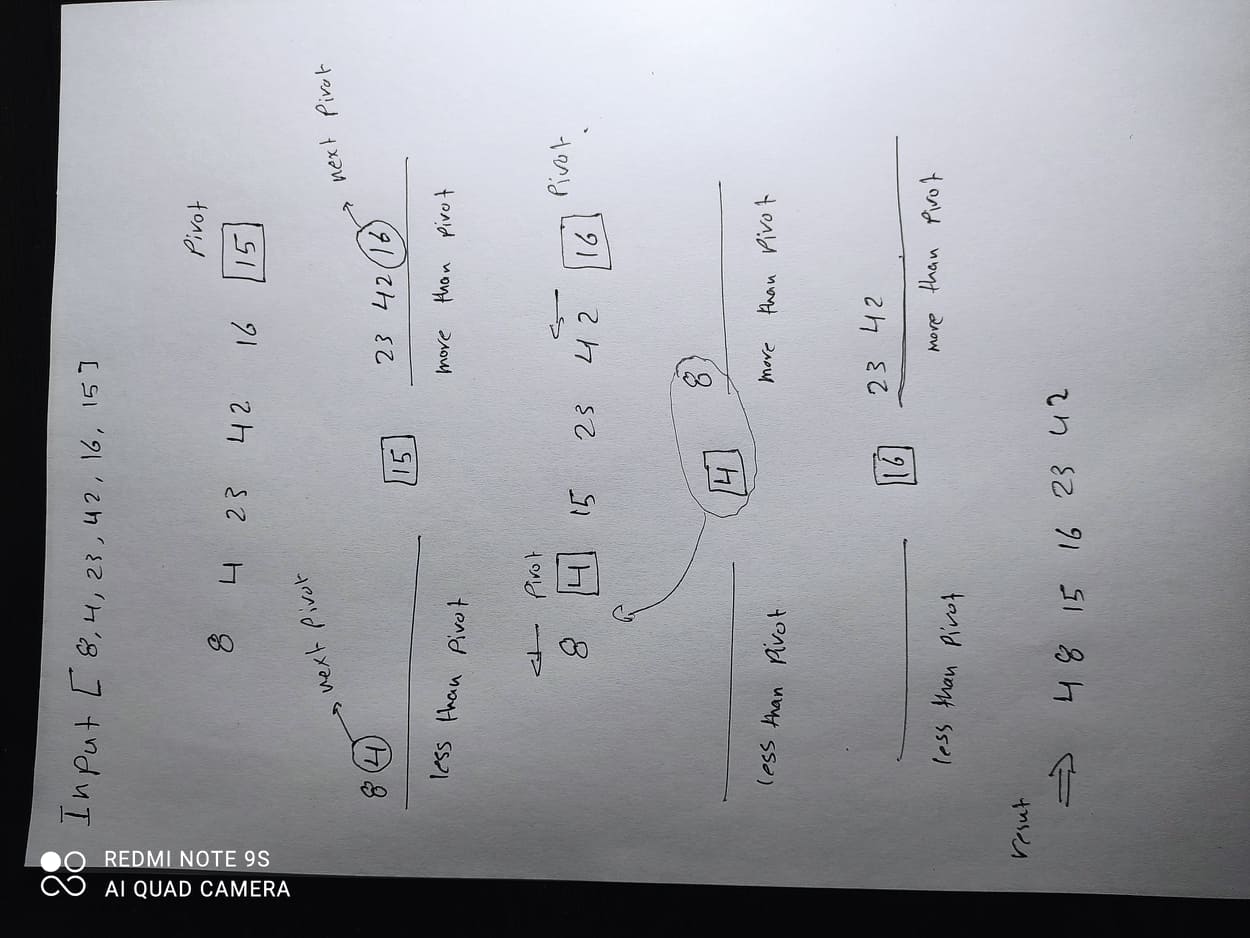 REDMI NOTE 9S
AI QUAD CAMERA
Input [ 8, 4, 23, 42, 16, 15 ]
Pivot
8 4 23 42 16 15
next pivot
next pivot
8 4 15 23 42 16
less than pivot more than pivot
Pivot Pivot
8 4 15 23 42 16
4 8
less than Pivot more than Pivot
16 23 42
less than pivot more than pivot
resut
⇒ 4 8 15 16 23 42